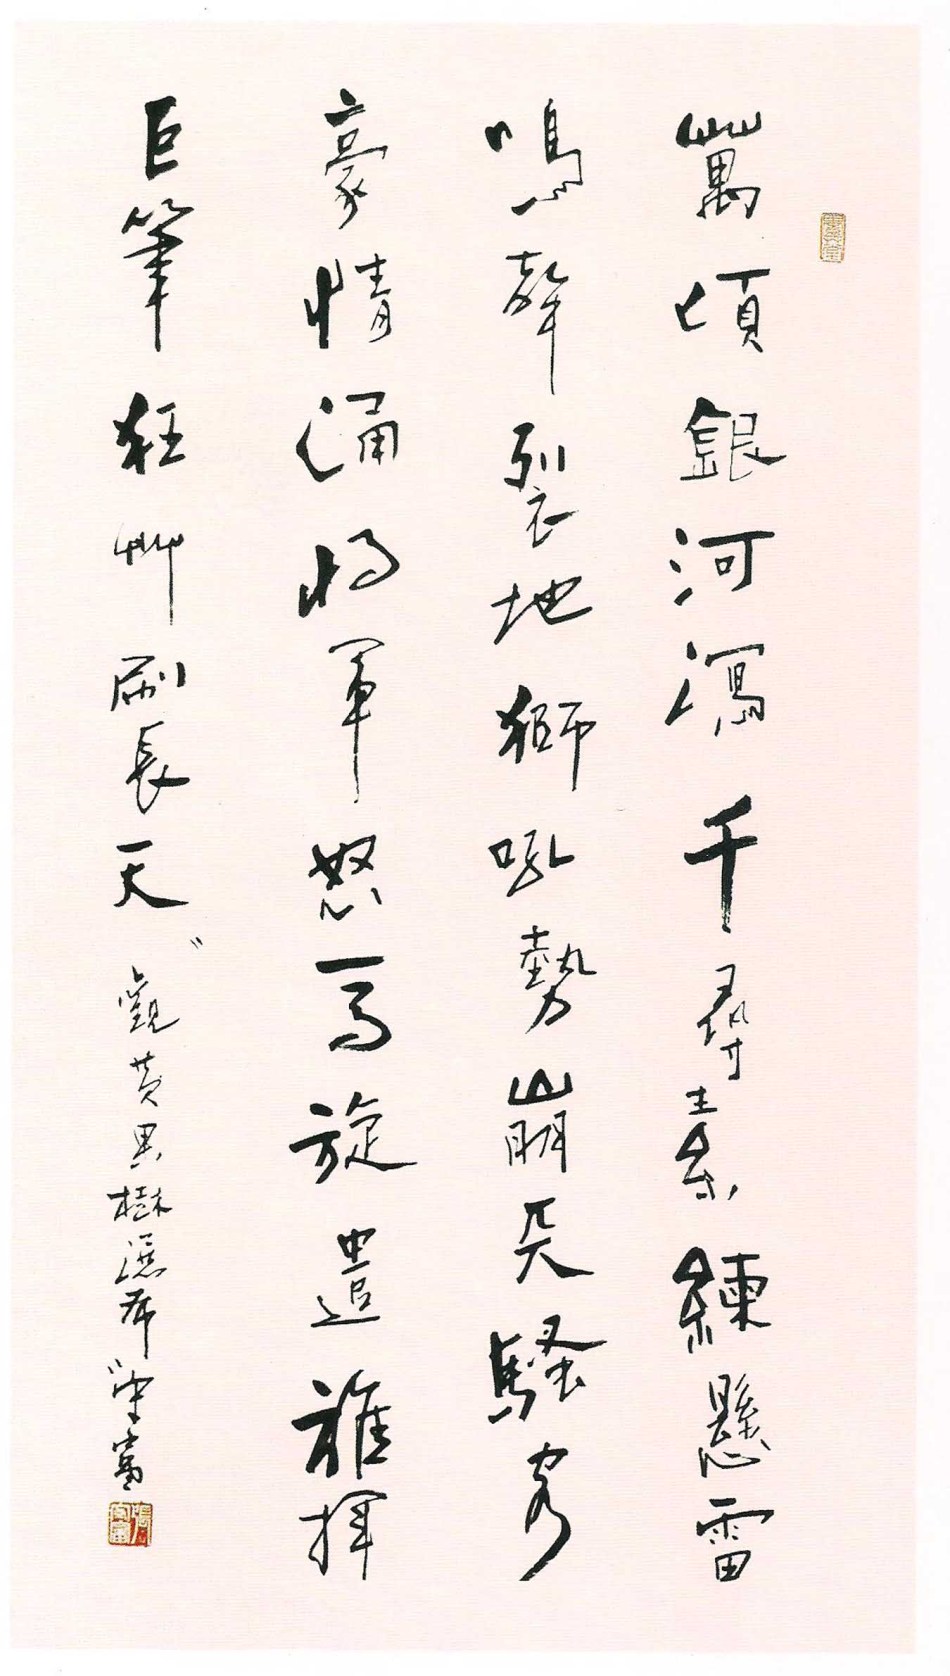 萬頃銀河瀉千尋素練懸雷
鳴聲裂地獅吼勢崩天騷客
豪情涌将軍怒馬旋遣誰揮
巨筆狂艸刷長天 觀黄果樹瀑布 守富